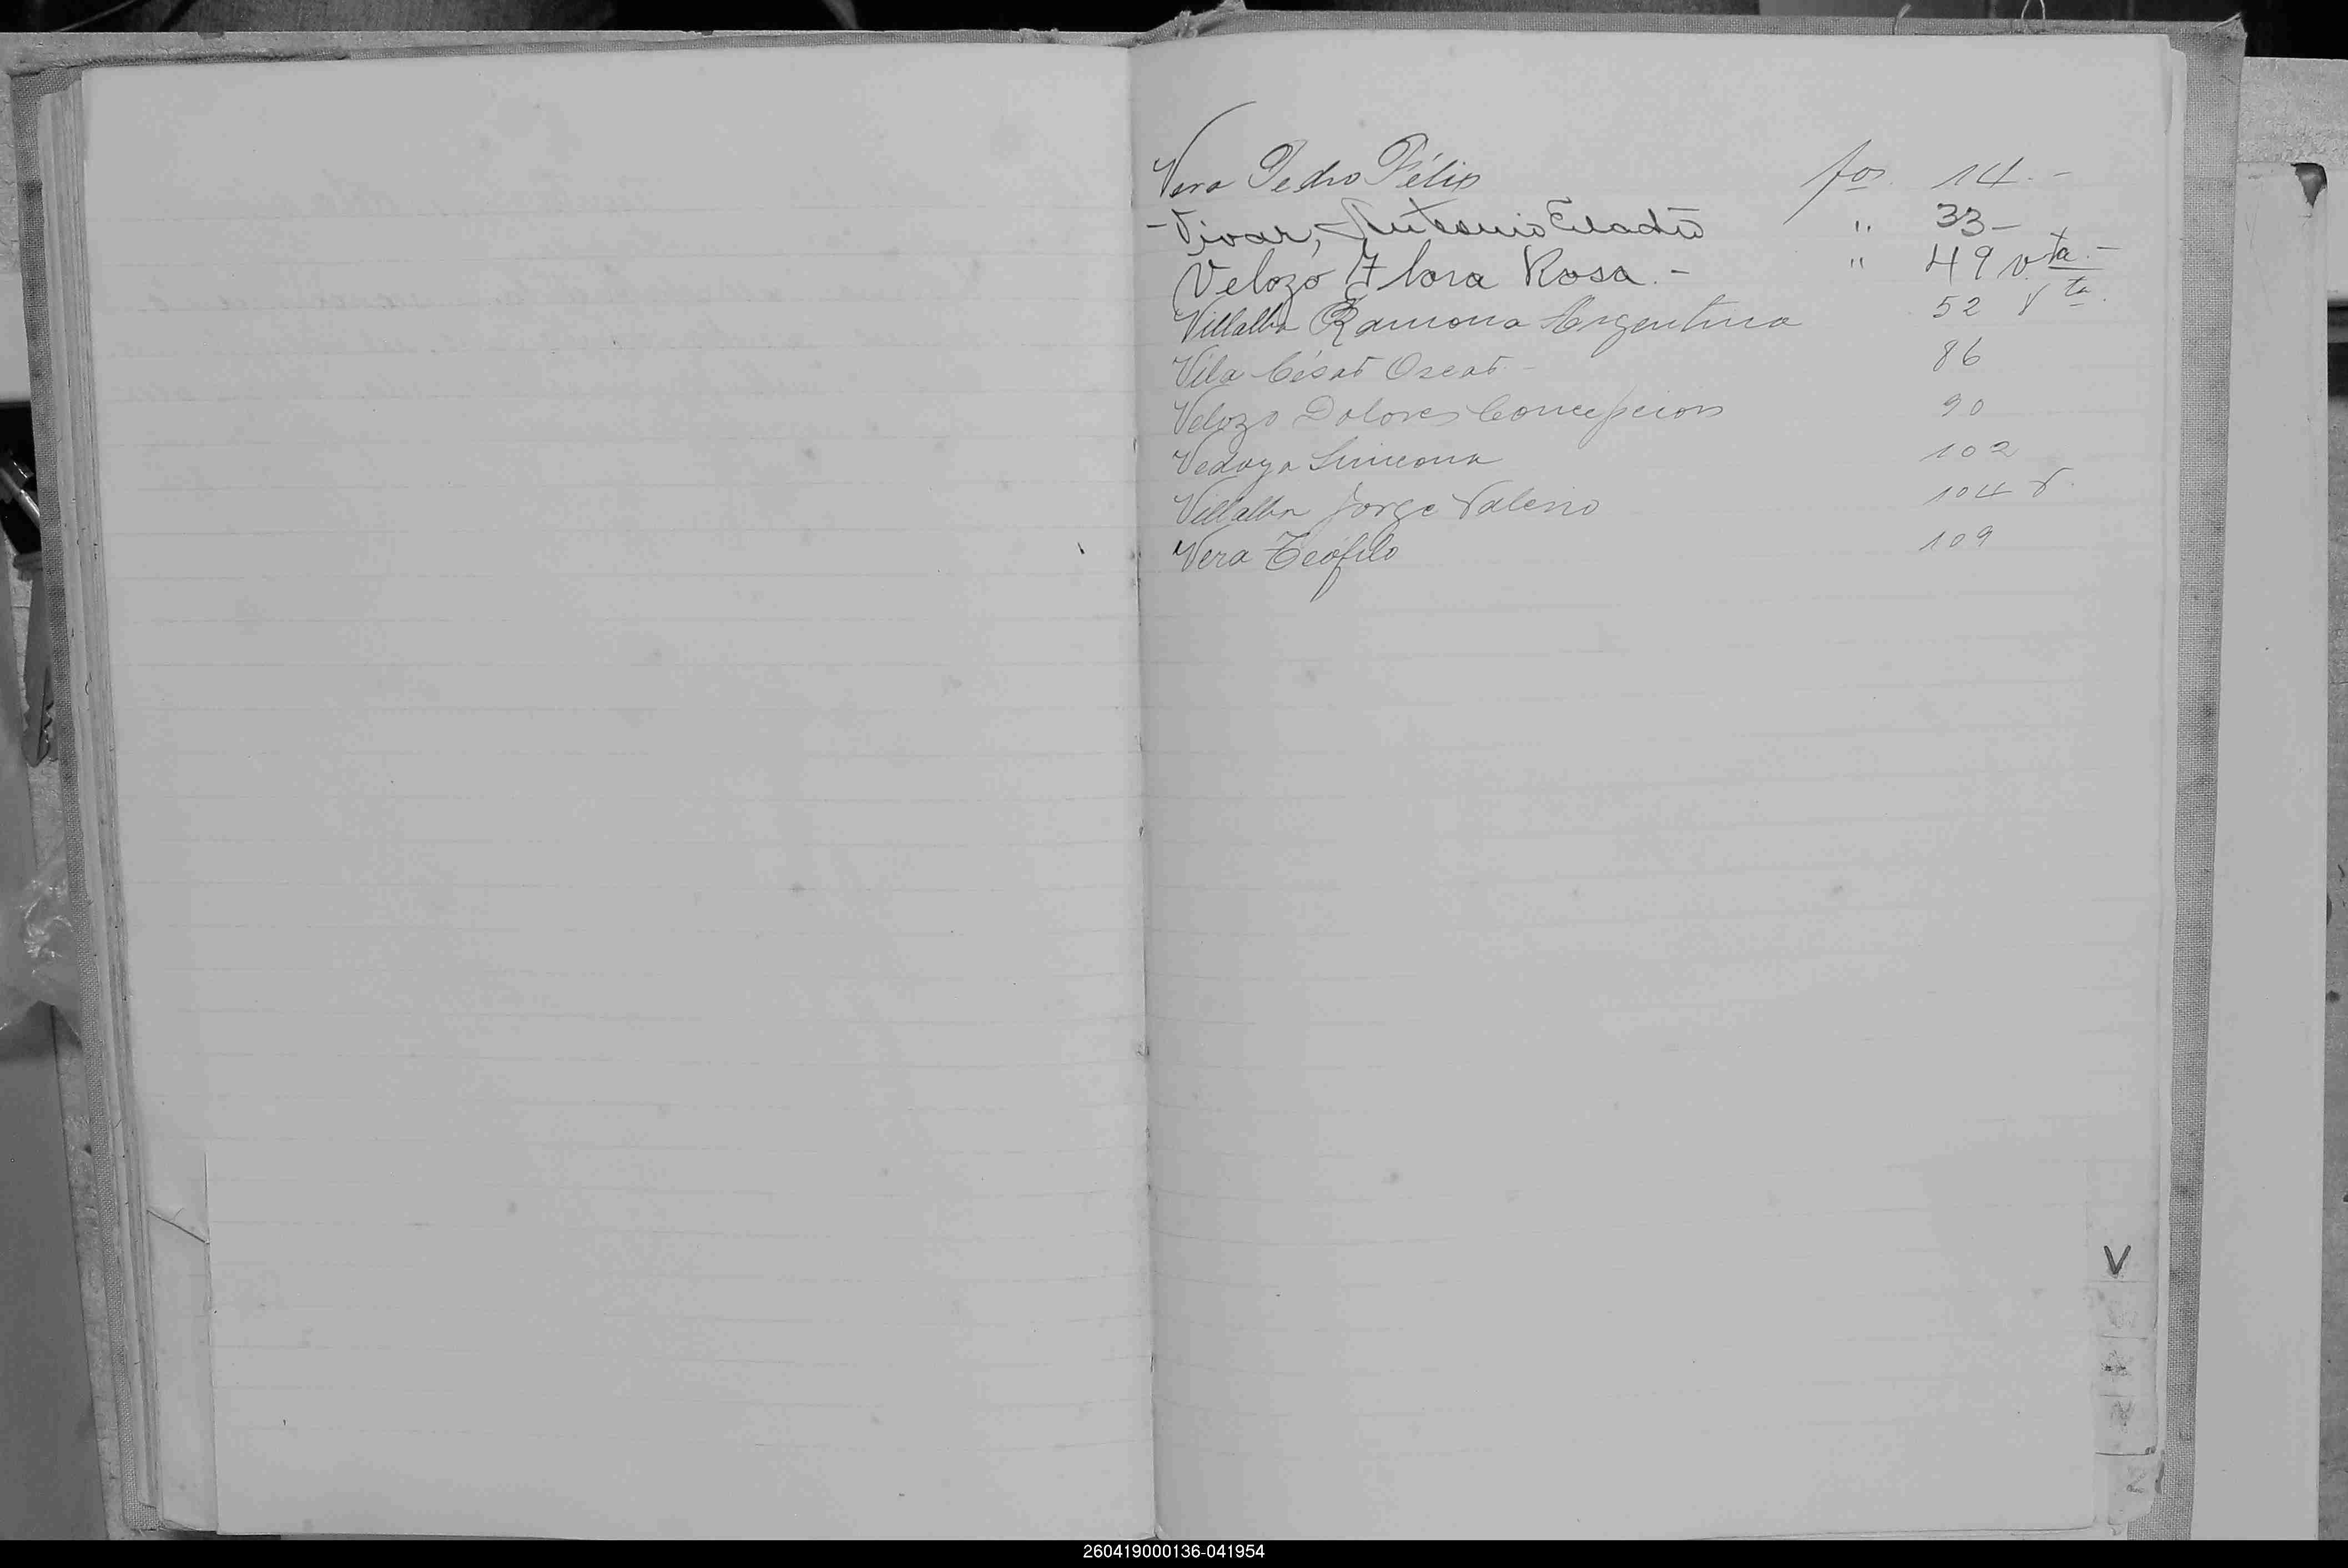 Vera Pedro Félix fos. 14. -
- Vivar, Antonio Eladio " 33 -
Velozo Flora Rosa. - " 49 v.ta -
Villalba Ramona Argentina 52 vta.
Vila César Oscar - 86
Velozo Dolores Concepcion 90
Vedoya Simeona 102
Villalba Jorge Valerio 104 v.
Vera Teófilo 109
V
260419000136-041954